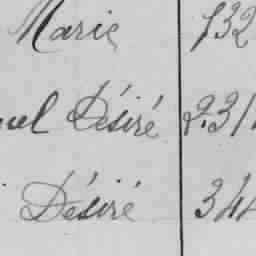 Marie 732
Désiré 2.31
Désiré 344